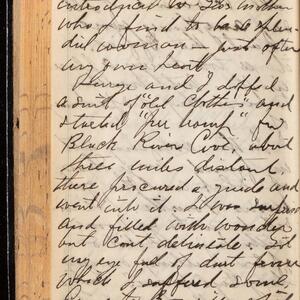 introduced to his mother
who I find to be a splen-
did woman — just after
my own heart
George and I doffed
a suit of "old Clothes" and
started "per hoof" for
Black River Cove, about
three miles distant,
there procured a guide and
went into it. I was surprised
and filled with wonder
but Cant, delineate. Got
my eye full of dust from
which I suffered some